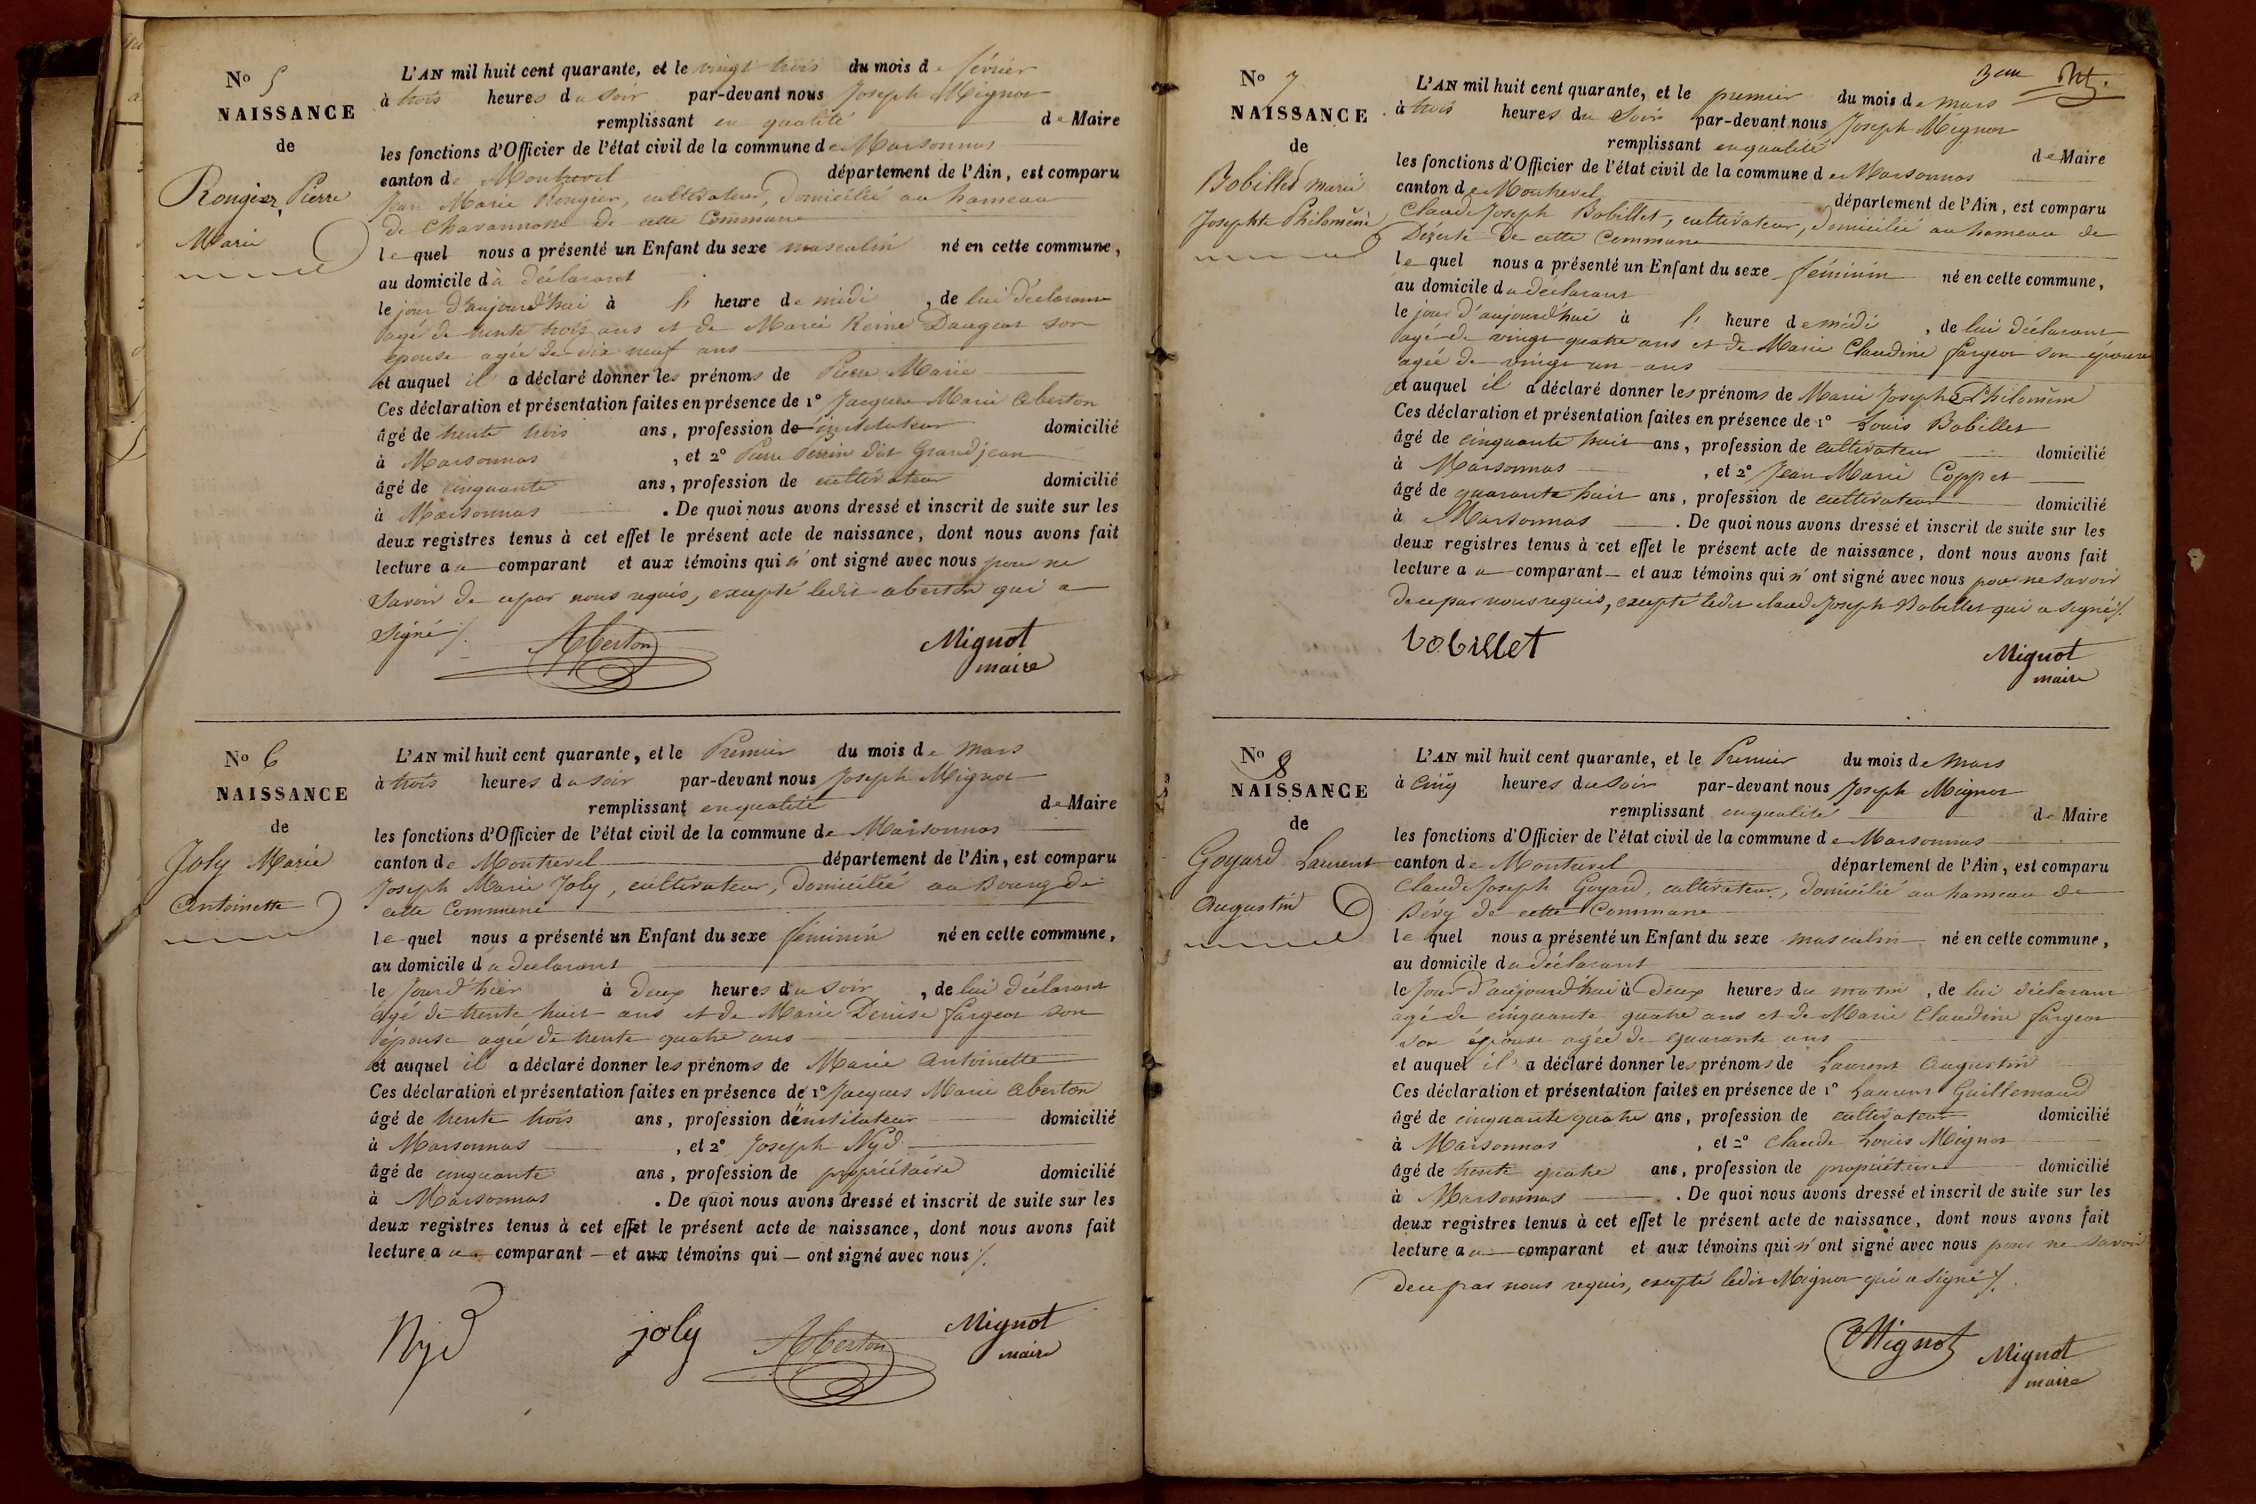 No 5
NAISSANCE
de
Rongier Pierre
Marie
L'AN mil huit cent quarante, et le vingt trois du mois de février
à trois heures du soir par-devant nous Joseph Mignot
remplissant en qualité de Maire
les fonctions d'Officier de l'état civil de la commune de Marsonnas
canton de Montrevel département de l'Ain, est comparu
Jean Marie Rongier, cultivateur, domicilié au hameau
de Chavannone de cette Commune
lequel nous a présenté un Enfant du sexe masculin né en cette commune,
au domicile du déclarant
le jour d'aujourd'hui à l' heure de midi, de lui déclarant
agé de trente trois ans et de Marie Reine Daugeat son
épouse agée de dix neuf ans
et auquel il a déclaré donner les prénoms de Pierre Marie
Ces déclaration et présentation faites en présence de 1º Jacques Marie Aberton
âgé de trente trois ans, profession de instituteur domicilié
à Marsonnas, et 2º Pierre Perrin dit Grandjean
âgé de cinquante ans, profession de cultivateur domicilié
à Marsonnas. De quoi nous avons dressé et inscrit de suite sur les
deux registres tenus à cet effet le présent acte de naissance, dont nous avons fait
lecture au comparant et aux témoins qui n'ont signé avec nous pour ne
savoir de ce par nous requis, excepté ledit aberton qui a
signé /.
Aberton
Mignot
maire
No 6
NAISSANCE
de
Joly Marie
Antoinette
L'AN mil huit cent quarante, et le Premier du mois de Mars
à trois heures du soir par-devant nous Joseph Mignot
remplissant en qualité de Maire
les fonctions d'Officier de l'état civil de la commune de Marsonnas
canton de Montrevel département de l'Ain, est comparu
Joseph Marie Joly, cultivateur, domicilié au Bourg de
cette Commune
lequel nous a présenté un Enfant du sexe féminin né en cette commune,
au domicile du déclarant
le Jour d'hier à deux heures du soir, de lui déclarant
agé de trente huit ans et de Marie Denise fargeot son
épouse agée de trente quatre ans
et auquel il a déclaré donner les prénoms de Marie Antoinette
Ces déclaration et présentation faites en présence de 1º Jacques Marie Aberton
âgé de trente trois ans, profession d'instituteur domicilié
à Marsonnas, et 2º Joseph Nyd
âgé de cinquante ans, profession de propriétaire domicilié
à Marsonnas. De quoi nous avons dressé et inscrit de suite sur les
deux registres tenus à cet effet le présent acte de naissance, dont nous avons fait
lecture au comparant et aux témoins qui ont signé avec nous /.
Nyd
joly
Aberton
Mignot
maire
No 7
NAISSANCE
de
Bobillet Marie
Josephte Philomène
L'AN mil huit cent quarante, et le premier du mois de mars
à trois heures du soir par-devant nous Joseph Mignot
remplissant en qualité de Maire
les fonctions d'Officier de l'état civil de la commune de Marsonnas
canton de Montrevel département de l'Ain, est comparu
Claude Joseph Bobillet, cultivateur, domicilié au hameau de
Déserte de cette Commune
lequel nous a présenté un Enfant du sexe féminin né en cette commune,
au domicile du déclarant
le jour d'aujourd'hui à l' heure de midi, de lui déclarant
agé de vingt quatre ans et de Marie Claudine fargeot son épouse
agée de vingt un ans
et auquel il a déclaré donner les prénoms de Marie Josephte Philomène
Ces déclaration et présentation faites en présence de 1º Louis Bobillet
âgé de cinquante huit ans, profession de cultivateur domicilié
à Marsonnas, et 2º Jean Marie Coppet
âgé de quarante huit ans, profession de cultivateur domicilié
à Marsonnas. De quoi nous avons dressé et inscrit de suite sur les
deux registres tenus à cet effet le présent acte de naissance, dont nous avons fait
lecture au comparant et aux témoins qui n'ont signé avec nous pour ne savoir
de ce par nous requis, excepté ledit claude Joseph Bobillet qui a signé /.
bobillet
Mignot
maire
No 8
NAISSANCE
de
Goyard Laurent
Augustin
L'AN mil huit cent quarante, et le Premier du mois de Mars
à cinq heures du soir par-devant nous Joseph Mignot
remplissant en qualité de Maire
les fonctions d'Officier de l'état civil de la commune de Marsonnas
canton de Montrevel département de l'Ain, est comparu
Claude Joseph Goyard, cultivateur, domicilié au hameau de
Béry de cette Commune
lequel nous a présenté un Enfant du sexe masculin né en cette commune,
au domicile du déclarant
le Jour d'aujourd'hui à Deux heures du matin, de lui déclarant
agé de cinquante quatre ans et de Marie Claudine fargeot
son épouse agée de quarante ans
et auquel il a déclaré donner les prénoms de Laurent Augustin
Ces déclaration et présentation faites en présence de 1º Laurent Guillemaud
âgé de cinquante quatre ans, profession de cultivateur domicilié
à Marsonnas, et 2º Claude Louis Mignot
âgé de trente quatre ans, profession de propriétaire domicilié
à Marsonnas. De quoi nous avons dressé et inscrit de suite sur les
deux registres tenus à cet effet le présent acte de naissance, dont nous avons fait
lecture au comparant et aux témoins qui n'ont signé avec nous pour ne savoir
de ce par nous requis, excepté ledit Mignot qui a signé /.
Mignot
Mignot
maire